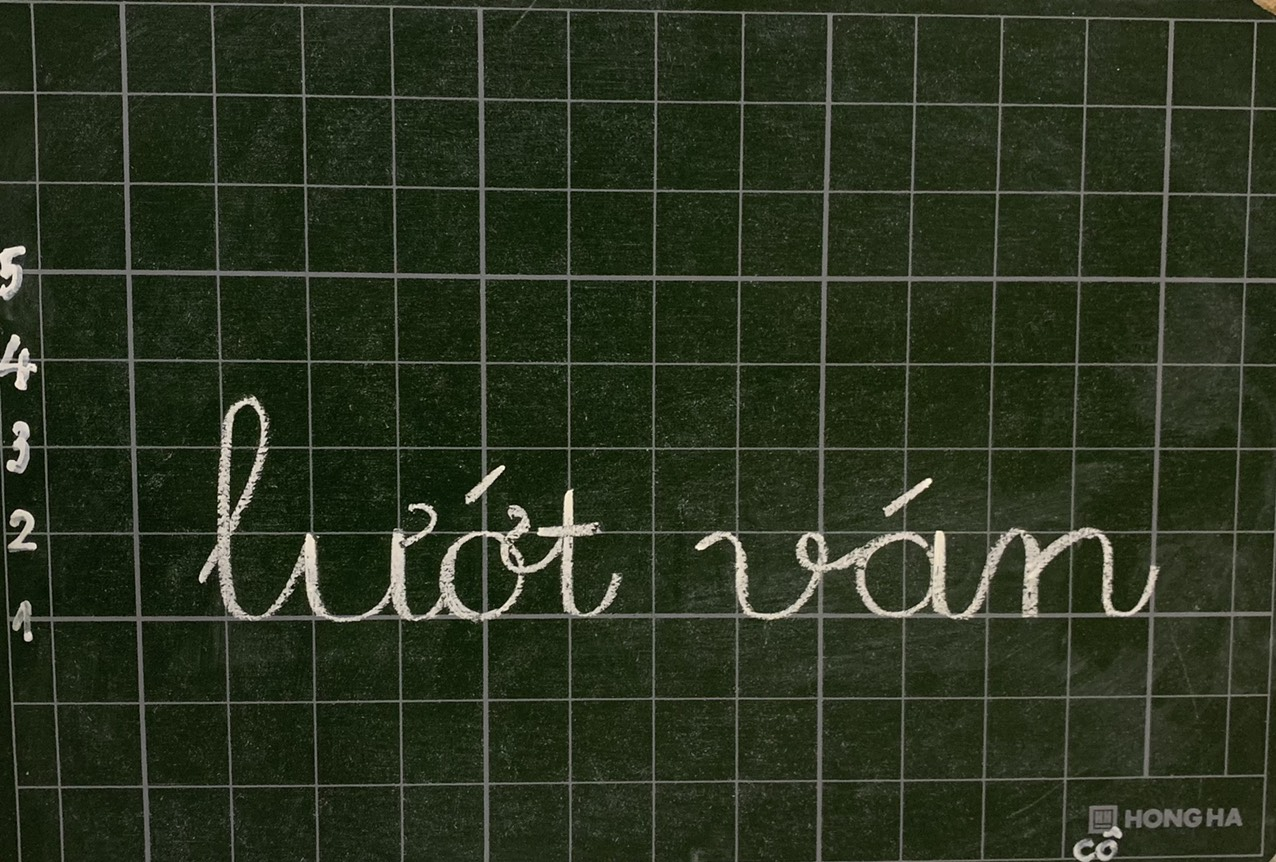 5
4
3
2
1
lướt ván
HONG HA
cô